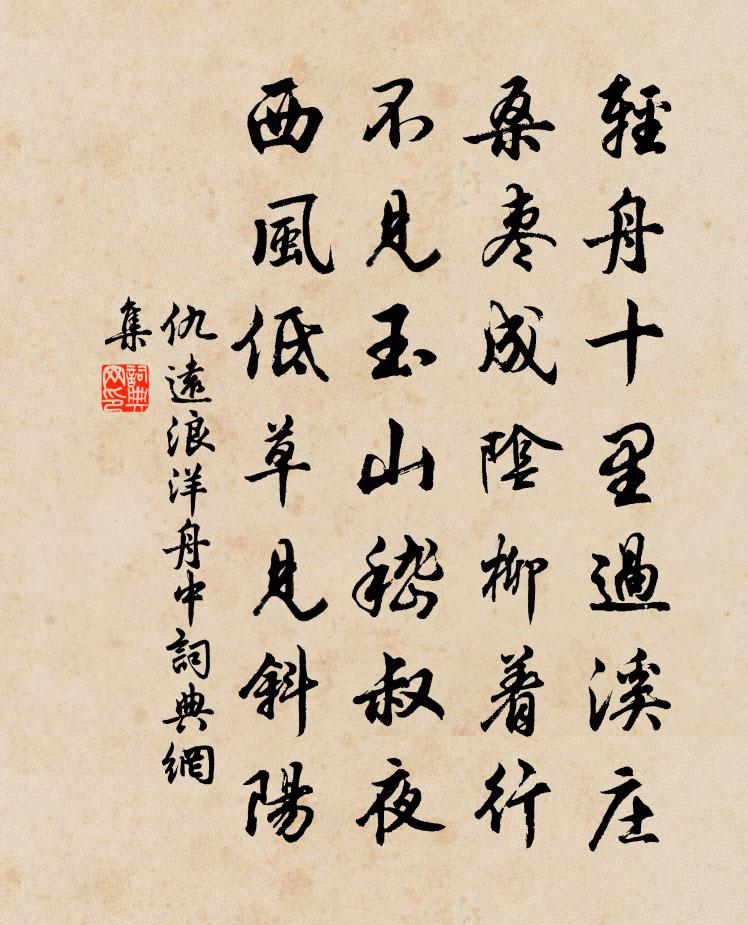 輕舟十里過溪庄
桑棗成陰柳着行
不見玉山嵇叔夜
西風低草見斜陽
仇遠浪洋舟中詞典網
集
詞典
网印